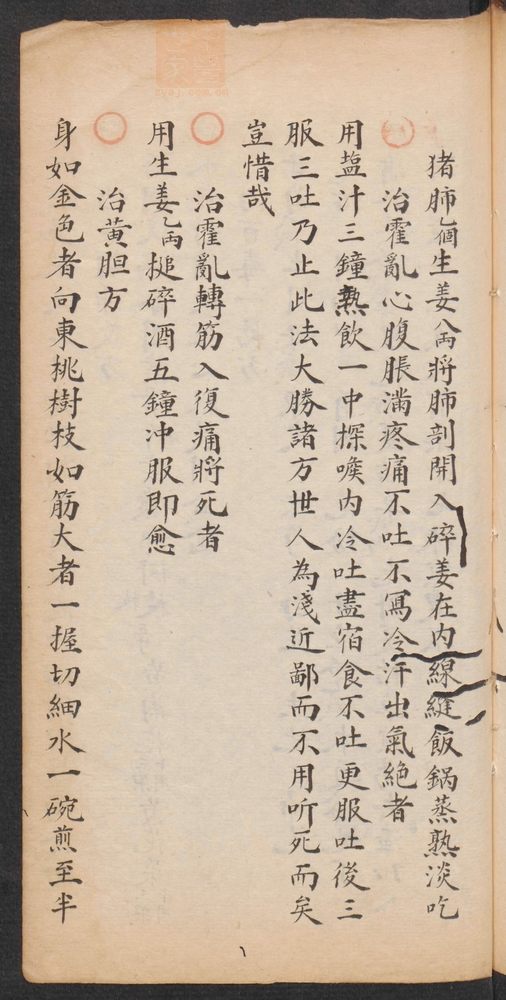 猪肺乙個生姜八両將肺剖開入碎姜在内線縫飯鍋蒸熟淡吃
治霍亂心腹脹滿疼痛不吐不冩冷汗出氣絕者
用塩汁三鐘熱飲一中探喉内冷吐盡宿食不吐更服吐後三
服三吐乃止此法大勝諸方世人為淺近鄙而不用听死而矣
豈惜哉
治霍亂轉筋入復痛將死者
用生姜乙両搥碎酒五鐘冲服即愈
治黄胆方
身如金色者向東桃樹枝如筋大者一握切細水一碗煎至半